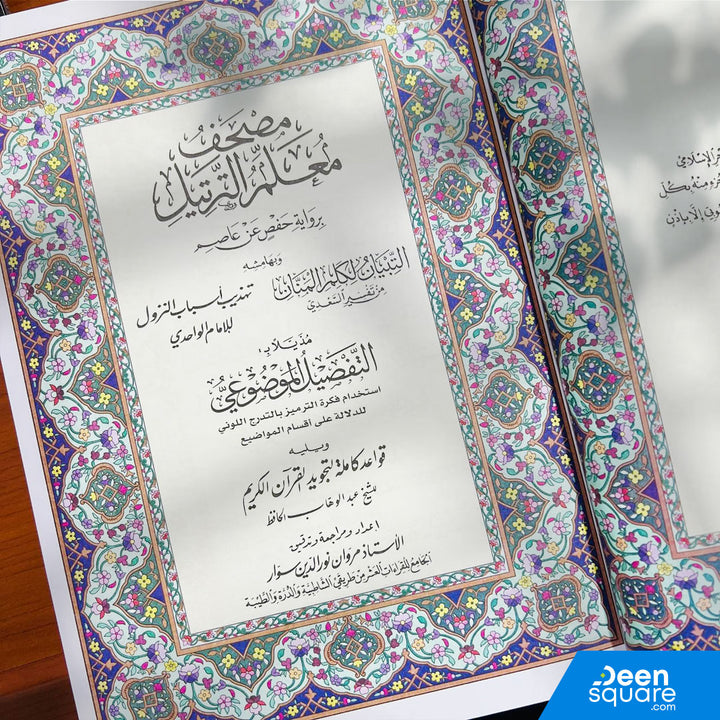 مصحف
معلم الترتيل
برواية حفص عن عاصم
وبهامشه
التبيان لكلم المنان
من تفسير السعدي
تهذيب أسباب النزول
للإمام الواحدي
مذيلا بـ:
التفصيل الموضوعي
استخدام فكرة الترميز بالتدرج اللوني
للدلالة على أقسام المواضيع
ويليه
قواعد كاملة لتجويد القرآن الكريم
للشيخ عبد الوهاب الحافظ
إعداد ومراجعة وتدقيق
الأستاذ مروان نور الدين سوار
الجامع للقراءات العشر من طريقي الشاطبية والدرة والطيبة
الإسلامي
منه بكل
إلا بإذن
Deen
square
.com